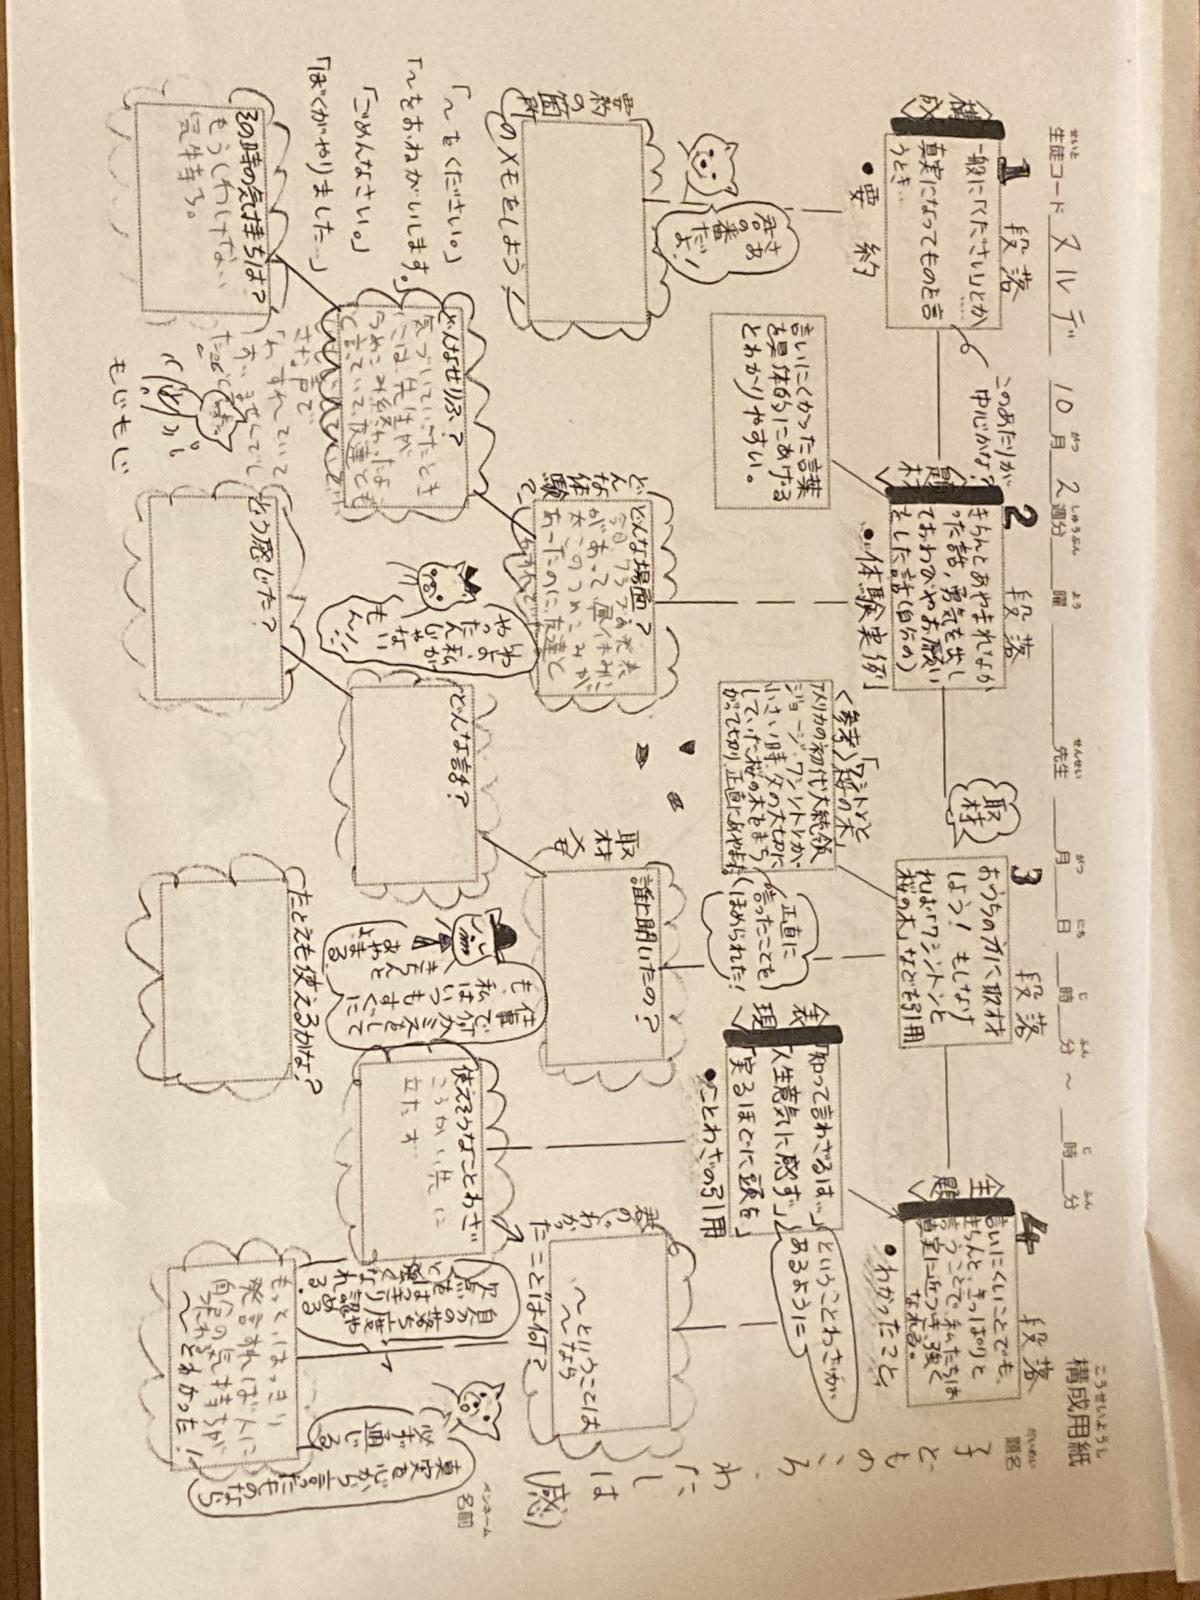 構成用紙
こうせいようし
題名
だいめい
子どものころ、わたしは(感)
ペンネーム
名前
生徒コード スルデ 10月2週分 曜 先生 月 日 時 分 ~ 時 分
せいと がつ しゅうぶん よう せんせい がつ にち じ ふん じ ふん
1 段落
<構成>
一般に「ください」とか
真実になってものと言
うとき、
●要約
このあたりが
中心かな?
さあ君の番だよ!
要約の箇所
のメモをしよう!
「~をください。」
「~をおねがいします。」
「ごめんなさい。」
「ぼくがやりました。」
2 段落
<題材>
きちんとあやまれてよか
った話、勇気を出し
ておわびやお願い
をした話(自分の)
●「体験実例」
言いにくかった言葉
を具体的にあげる
とわかりやすい。
どんな体験?
どんな場面?
今日クラブ発表
があって昼休みに
太このつめこみが
あったのに友達と
どんなせりふ?
気づいていったとき
には、先生が
「つめこみ終わったよ」
と言っていて、友達とも
小さな声で
「わすれていて
すいませんでし
その時の気持ちは?
もうしわけない
気持ち。
もじもじ
いやよ、私がやったんじゃないもん!!
3 段落
取材
おうちの方に取材
しよう! もしなけ
れば「ワシントンと
桜の木」などを引用
<参考>「ワシントンと桜の木」
アメリカの初代大統領
ジョージ・ワシントンが
小さい時、父の大切に
していた桜の木をまち
がって切り、正直にあやまった
正直に
言ったことを
ほめられた!
誰に聞いたの?
どんな話?
どう感じた?
仕事で何かミスをしても、私はいつもすぐにきちんとあやまる
たとえも使えるかな?
4 段落
<主題>
言いにくいことでも、
きちんと、きっぱりと
言うことで私たちは
真実に近づき、強く
なれる。
●わかったこと
<表現>
「知って言わざるは…」
「人生意気に感ず」
「実るほどに頭を」
●ことわざの引用
ということわざが
あるように
使えそうなことわざ
こうかい先に
立たず
君のわかったことは何?
~ということは
~なら
自身の落ち度や欠点をはっきり認めると強くなれる。
もっとはっきり
発言すれば人に
自分の気持ちが
~とわかった!
真実を心から言ったものなら必ず通じる